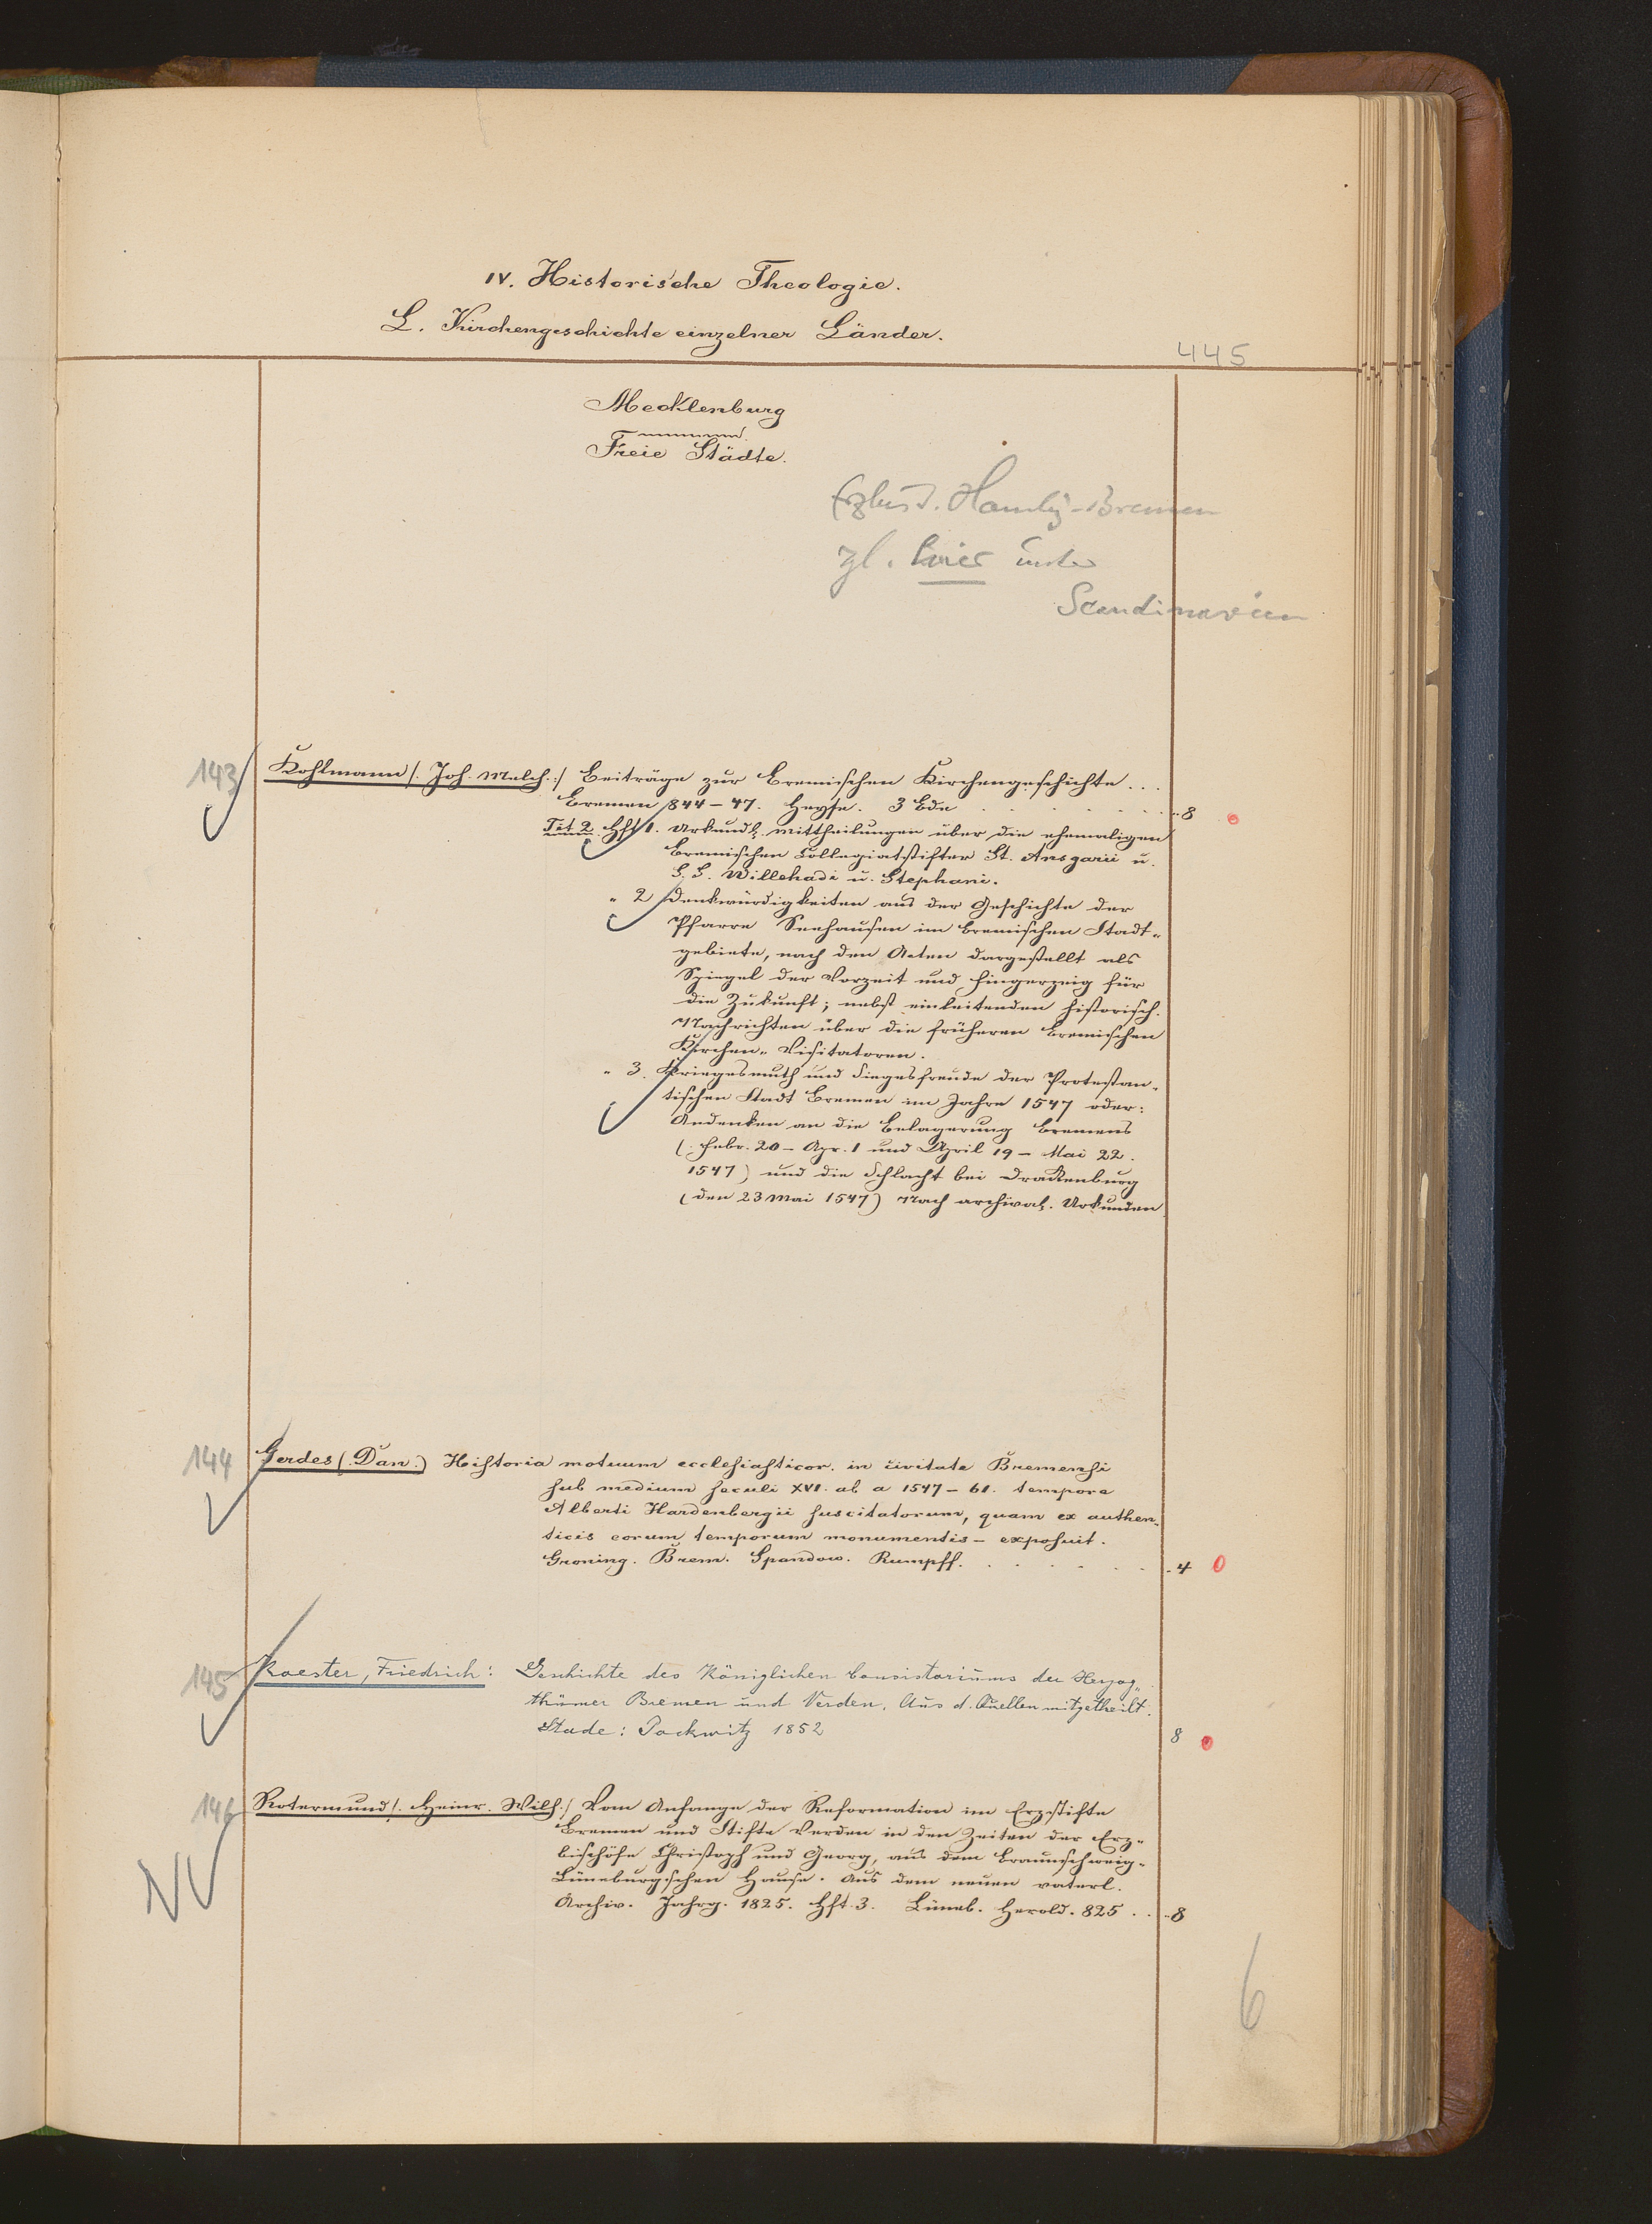 IV. Historische Theologie.
L. Kirchengeschichte einzelner Länder.
445
Mecklenburg
Freie Städte.
Erzbist. Hambg-Bremen
unter
Scandinavien
143
Kohlmann /: Joh. Melch. :/ Beiträge zur Bremischen Kirchengeschichte . . .
Bremen 844 - 47. Heyse. 3 Bde . . . . . . . . 8
Tit 2. Hft 1. Urkundl. Mittheilungen über die ehemaligen
Bremischen Collegiatstifter St. Ansgarii u.
S. S. Willehadi u. Stephani.
" 2 Denkwürdigkeiten aus der Geschichte der
Pfarre Seehausen im bremischen Stadt-
gebiete, nach den Acten dargestellt als
Spiegel der Vorzeit und Fingerzeig für
die Zukunft; nebst einleitenden historisch.
Nachrichten über die früheren bremischen
Kirchen-Visitatoren.
" 3. Kriegesmuth und Siegesfreude der Protestan-
tischen Stadt Bremen im Jahre 1547 oder:
Andenken an die Belagerung Bremens
(Febr. 20 - Apr. 1 und April 19 - Mai 22.
1547) und die Schlacht bei Drakenburg
(den 23 Mai 1547) Nach archival. Urkunden
144
Gerdes (. Dan :) Historia motuum ecclesiasticor. in civitate Bremensi
sub medium seculi XVI. ab a 1547 - 61. tempore
Alberti Hardenbergii suscitatorum, quam ex authen-
ticis eorum temporum monumentis - exposuit.
Groning. Brem. Spandow. Rumpff. . . . . . . 4
145
Koester, Friedrich: Geschichte des Königlichen Consistoriums der Herzog-
thümer Bremen und Verden. Aus d. Quellen mitgetheilt.
Stade: Pockwitz 1852 8
146
Rotermund /. Heinr. Wilh. :/ Vom Anfange der Reformation im Erzstifte
Bremen und Stifte Verden in den Zeiten der Erz-
bischöfe Christoph und Georg, aus dem braunschweig-
Lüneburgschen Hause. Aus dem neuen vaterl.
Archiv. Jahrg. 1825. Hft. 3. Lüneb. Herold. 825 . . 8
NV
6